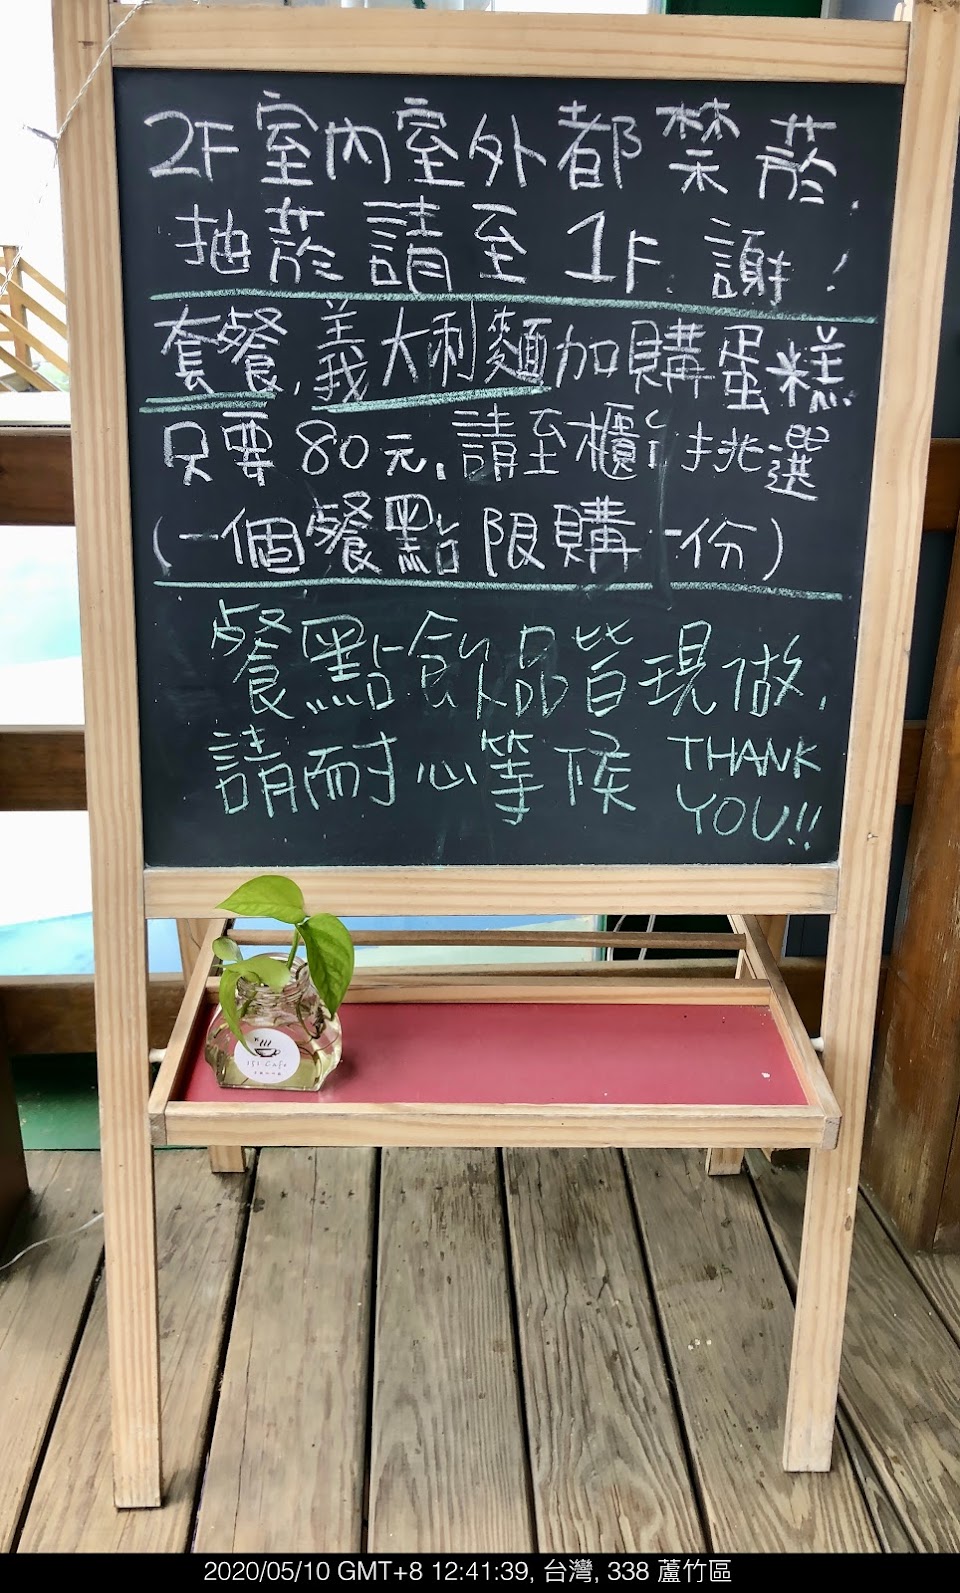 2F室內室外都禁菸,
抽菸請至1F.謝!
套餐,義大利麵加購蛋糕
只要80元,請至櫃台挑選
(一個餐點限購一份)
餐點飲品皆現做,
請耐心等候 THANK
YOU!!
151 Cafe
2020/05/10 GMT+8 12:41:39, 台灣, 338 蘆竹區